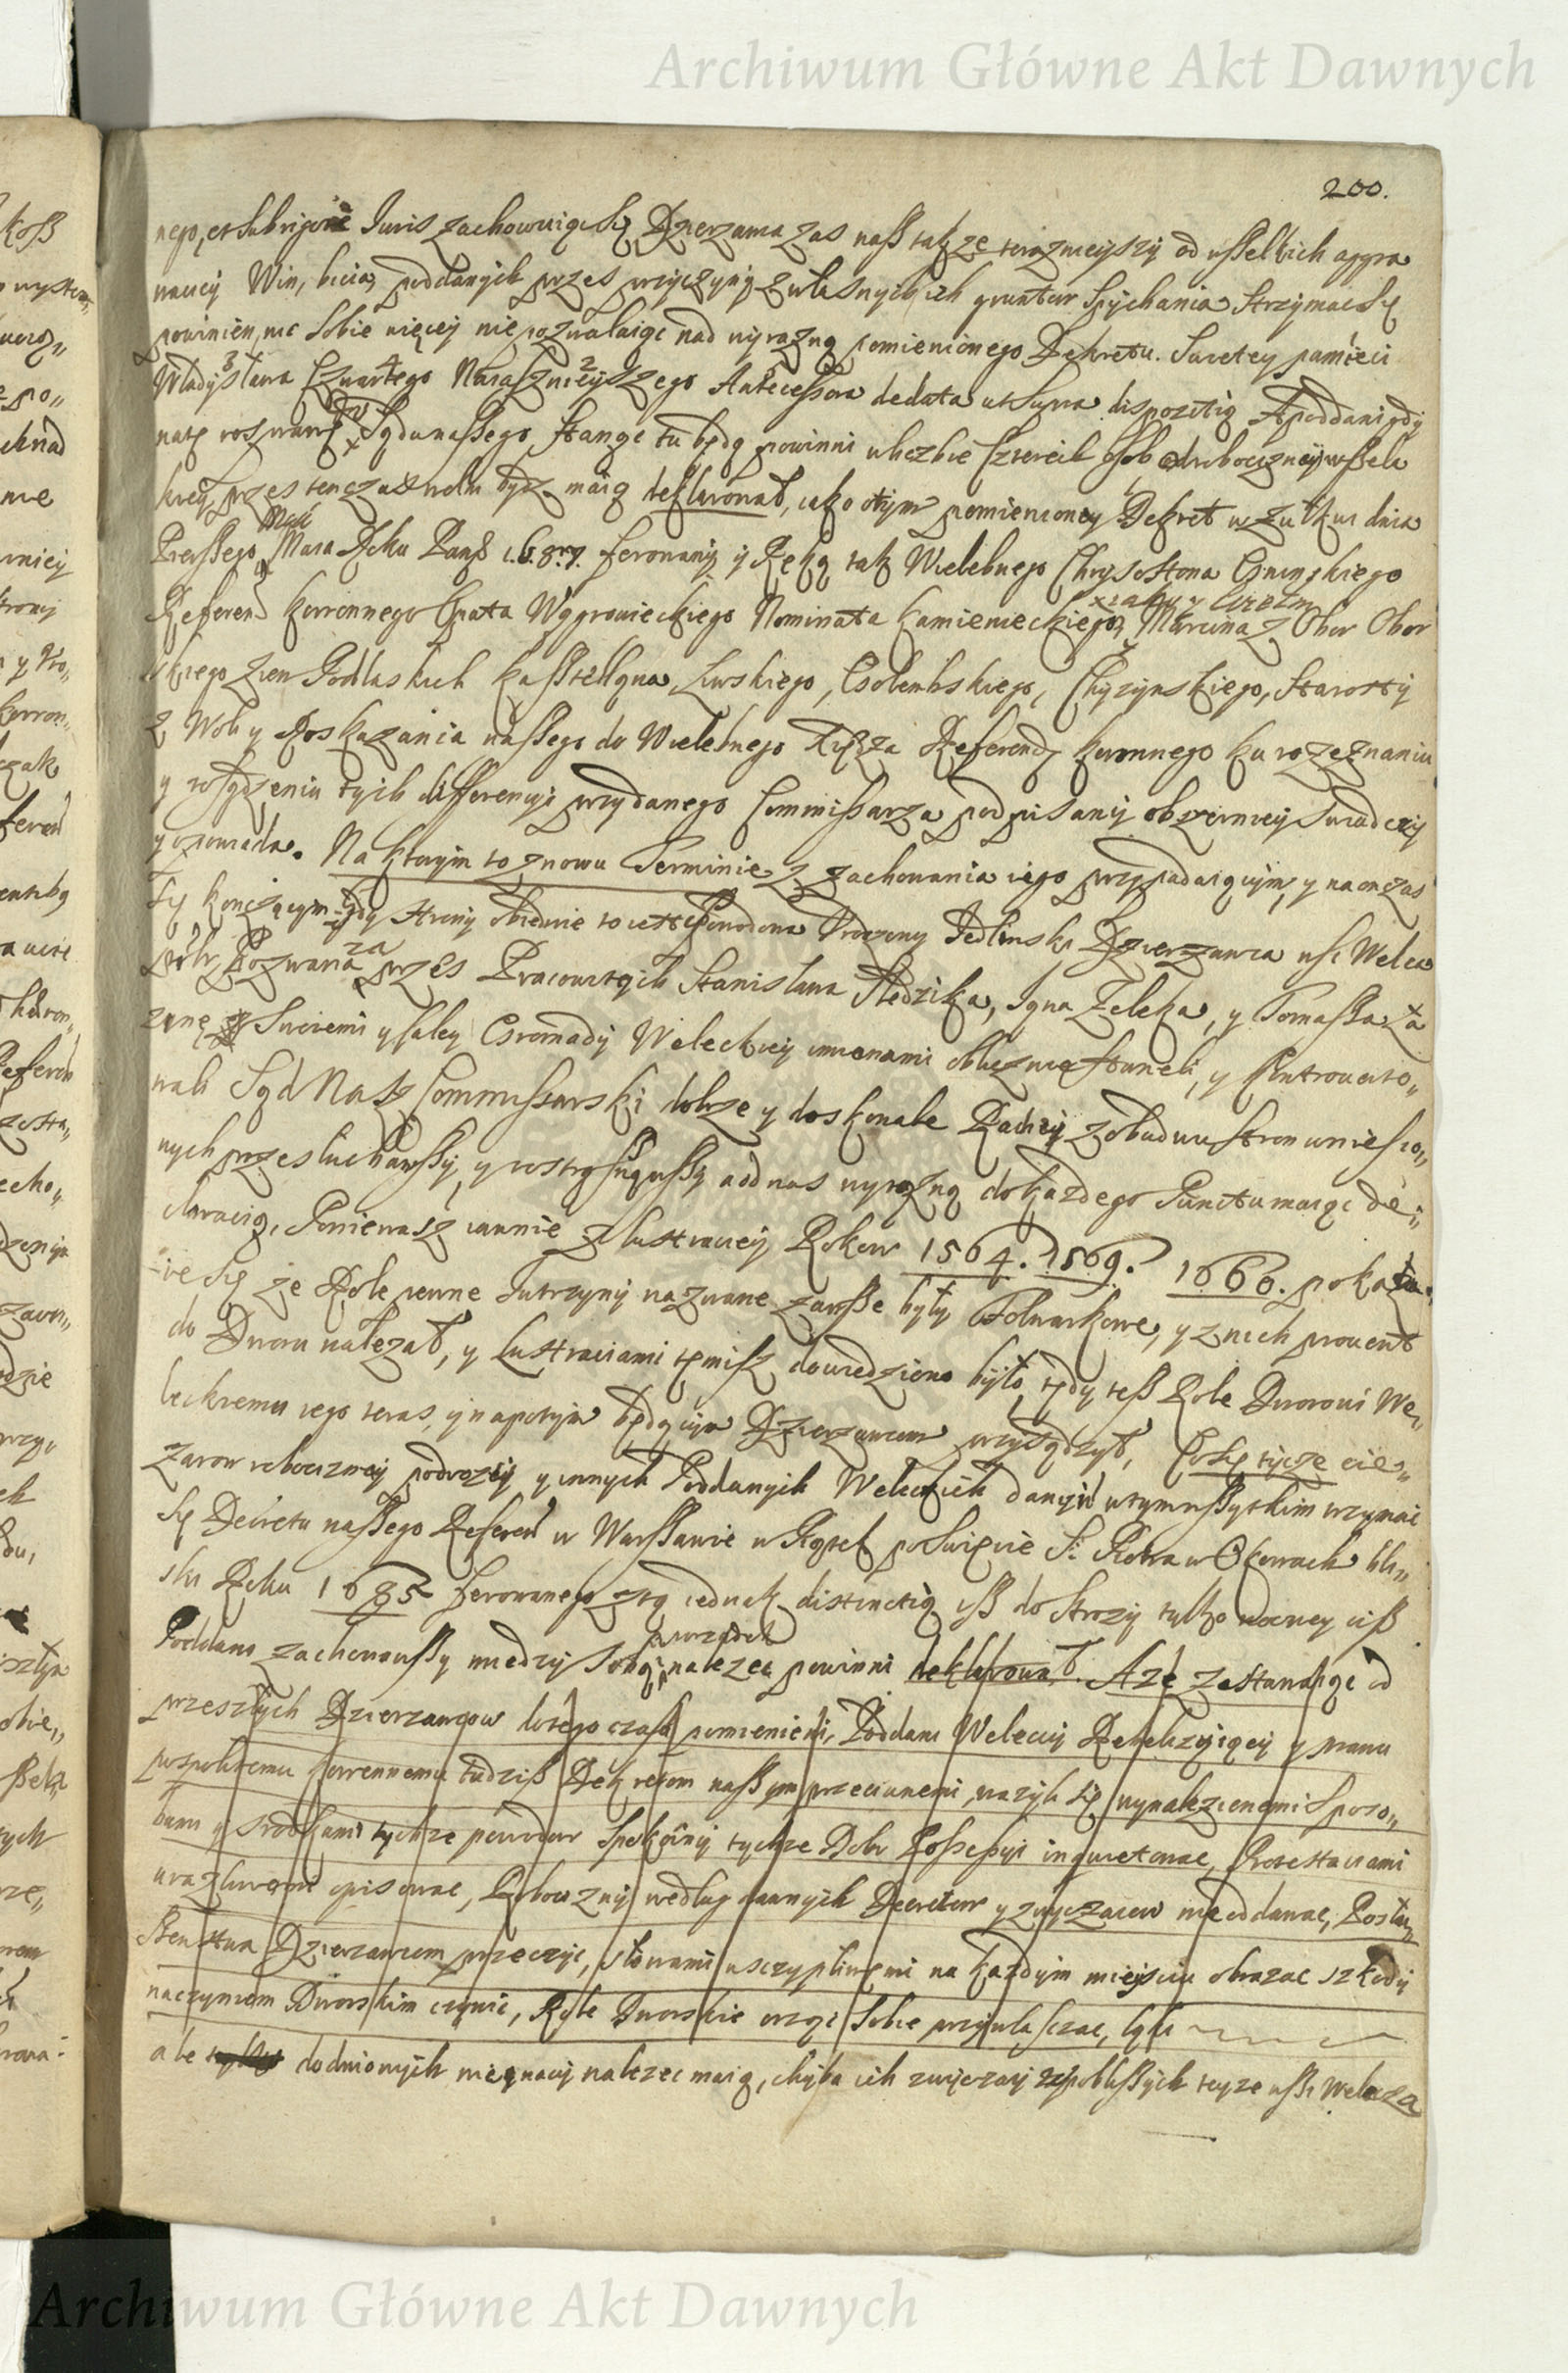 Archiwum Główne Akt Dawnych
200.
nego, et sub rigore Juris zachowuiąc się Dzierzawca zas nasz takze terazniejszy od wszelkich aggra
wacij Win, bicia, poddanych przes przyczyny z własnych ich gruntow spychania strzymac się
powinien, nic sobie więcej nie pozwalaiąc nad wyrazną pomienionego Dekretu. Swietey pamieci
Władysława Czwartego Naiasznieyszego Antecessora dedata et supra dispozitią A poddani gdy
na tę rozprawę Sądu naszego staną tu będą powinni w liczbie Czterech osob od robocizny wszela
kiey przes ten czas wolni bydz maią deklarował, iako o tym pomieniony Dekret w dnia
Pierwszego Maia Roku Pans 1687. ferowany y Ręką tak Wielebnego Chrysostoma Gninskiego
Referend Korronnego Opata Wągrowieckiego Nominata Kamienieckiego, Marcina z Obor Obor
skiego Ziem Podlaskich Kasztellana Liwskiego, Golembskiego, Chyzynskiego, Starosty
z Woli y Roskazania naszego do Wielebnego Xiędza Referend Koronnego ku rozeznaniu
y rosądzeniu tych differencyi przydanego Commissarza podpisany obszerniey swiadczy
y opowiada. Na ktorym to znowu Terminie z zachowania iego przypadaiącym, y na on czas
się kończącym gdy strony obiedwie to iest Powodowa Urodzony Jedlinski Dzierzawca wsi Welcza
Pozwana zas przes Pracowitych Stanisława Sledzika, Jana Zeleka, y Tomasza
swiemi y całey Gromady Weleckiey imienami oblicznie staneli, y Controwerto„
wali Sąd Nasz Commissarski dobrze y doskonale Racyi z obudwu stron wniesio„
nych przesłuchawszy, y rostrząsnąwszy a od nas wyrazną do kazdego Punctu maiąc de„
claracią, Poniewasz iawnie z lustraciey Rokow 1564. 1569. 1660. pokazu„
ie się ze Role pewne Jutrzyny nazwane zawsze były Folwarkowe, y z nich prowent
do Dworu nalezał, y lustraciami tęmisz dowiedziono było, tedy tesz Role Dworowi We„
leckiemu iego teras, y napotym będącym Dzierzawcom przysądzył, Co się tycze cię„
zarow robocizney podrozy y innych Poddanych Weleckich danin w tym wszystkim trzymai
się Decretu naszego Referend w Warszawie w Piątek po Swięcie S. Piotra w Okowach bli„
sku Roku 1685 ferowanego z tą iednak distinctią isz do strozy tylko nocney cisz
Poddani zachowawszy miedzy sobą porządek nalezec powinni deklarował. A ze zostawaiąc od
przeszłych Dzierzawcow do tego czasu pomienieni Poddani Weleccy Rebelizyiący y prawu
pospolitemu Korronnemu tudzisz Dekretom naszym przeciwnemi, wazyli się wynalezionemi sposo„
bami y srodkami tychze powodow spokoiney tychze Dobr Possessyi inquietowac, Protestaciami
urazliwemi opisowac, Robocizny według dawnych Decretow y zwyczaiow nie oddawac, Posłu„
szenstwa Dzierzawcom przeczyc, słowami uszczypliwemi na kazdym mieyscu obrazac szkody
naczyniom Dworskim czynic, Role Dworskie orząc sobie przywłaszczac,
ale do dniowych nie nalezec maią, chyba ich zwyczay z pobliszych teyze wsi Welcza
Archiwum Główne Akt Dawnych